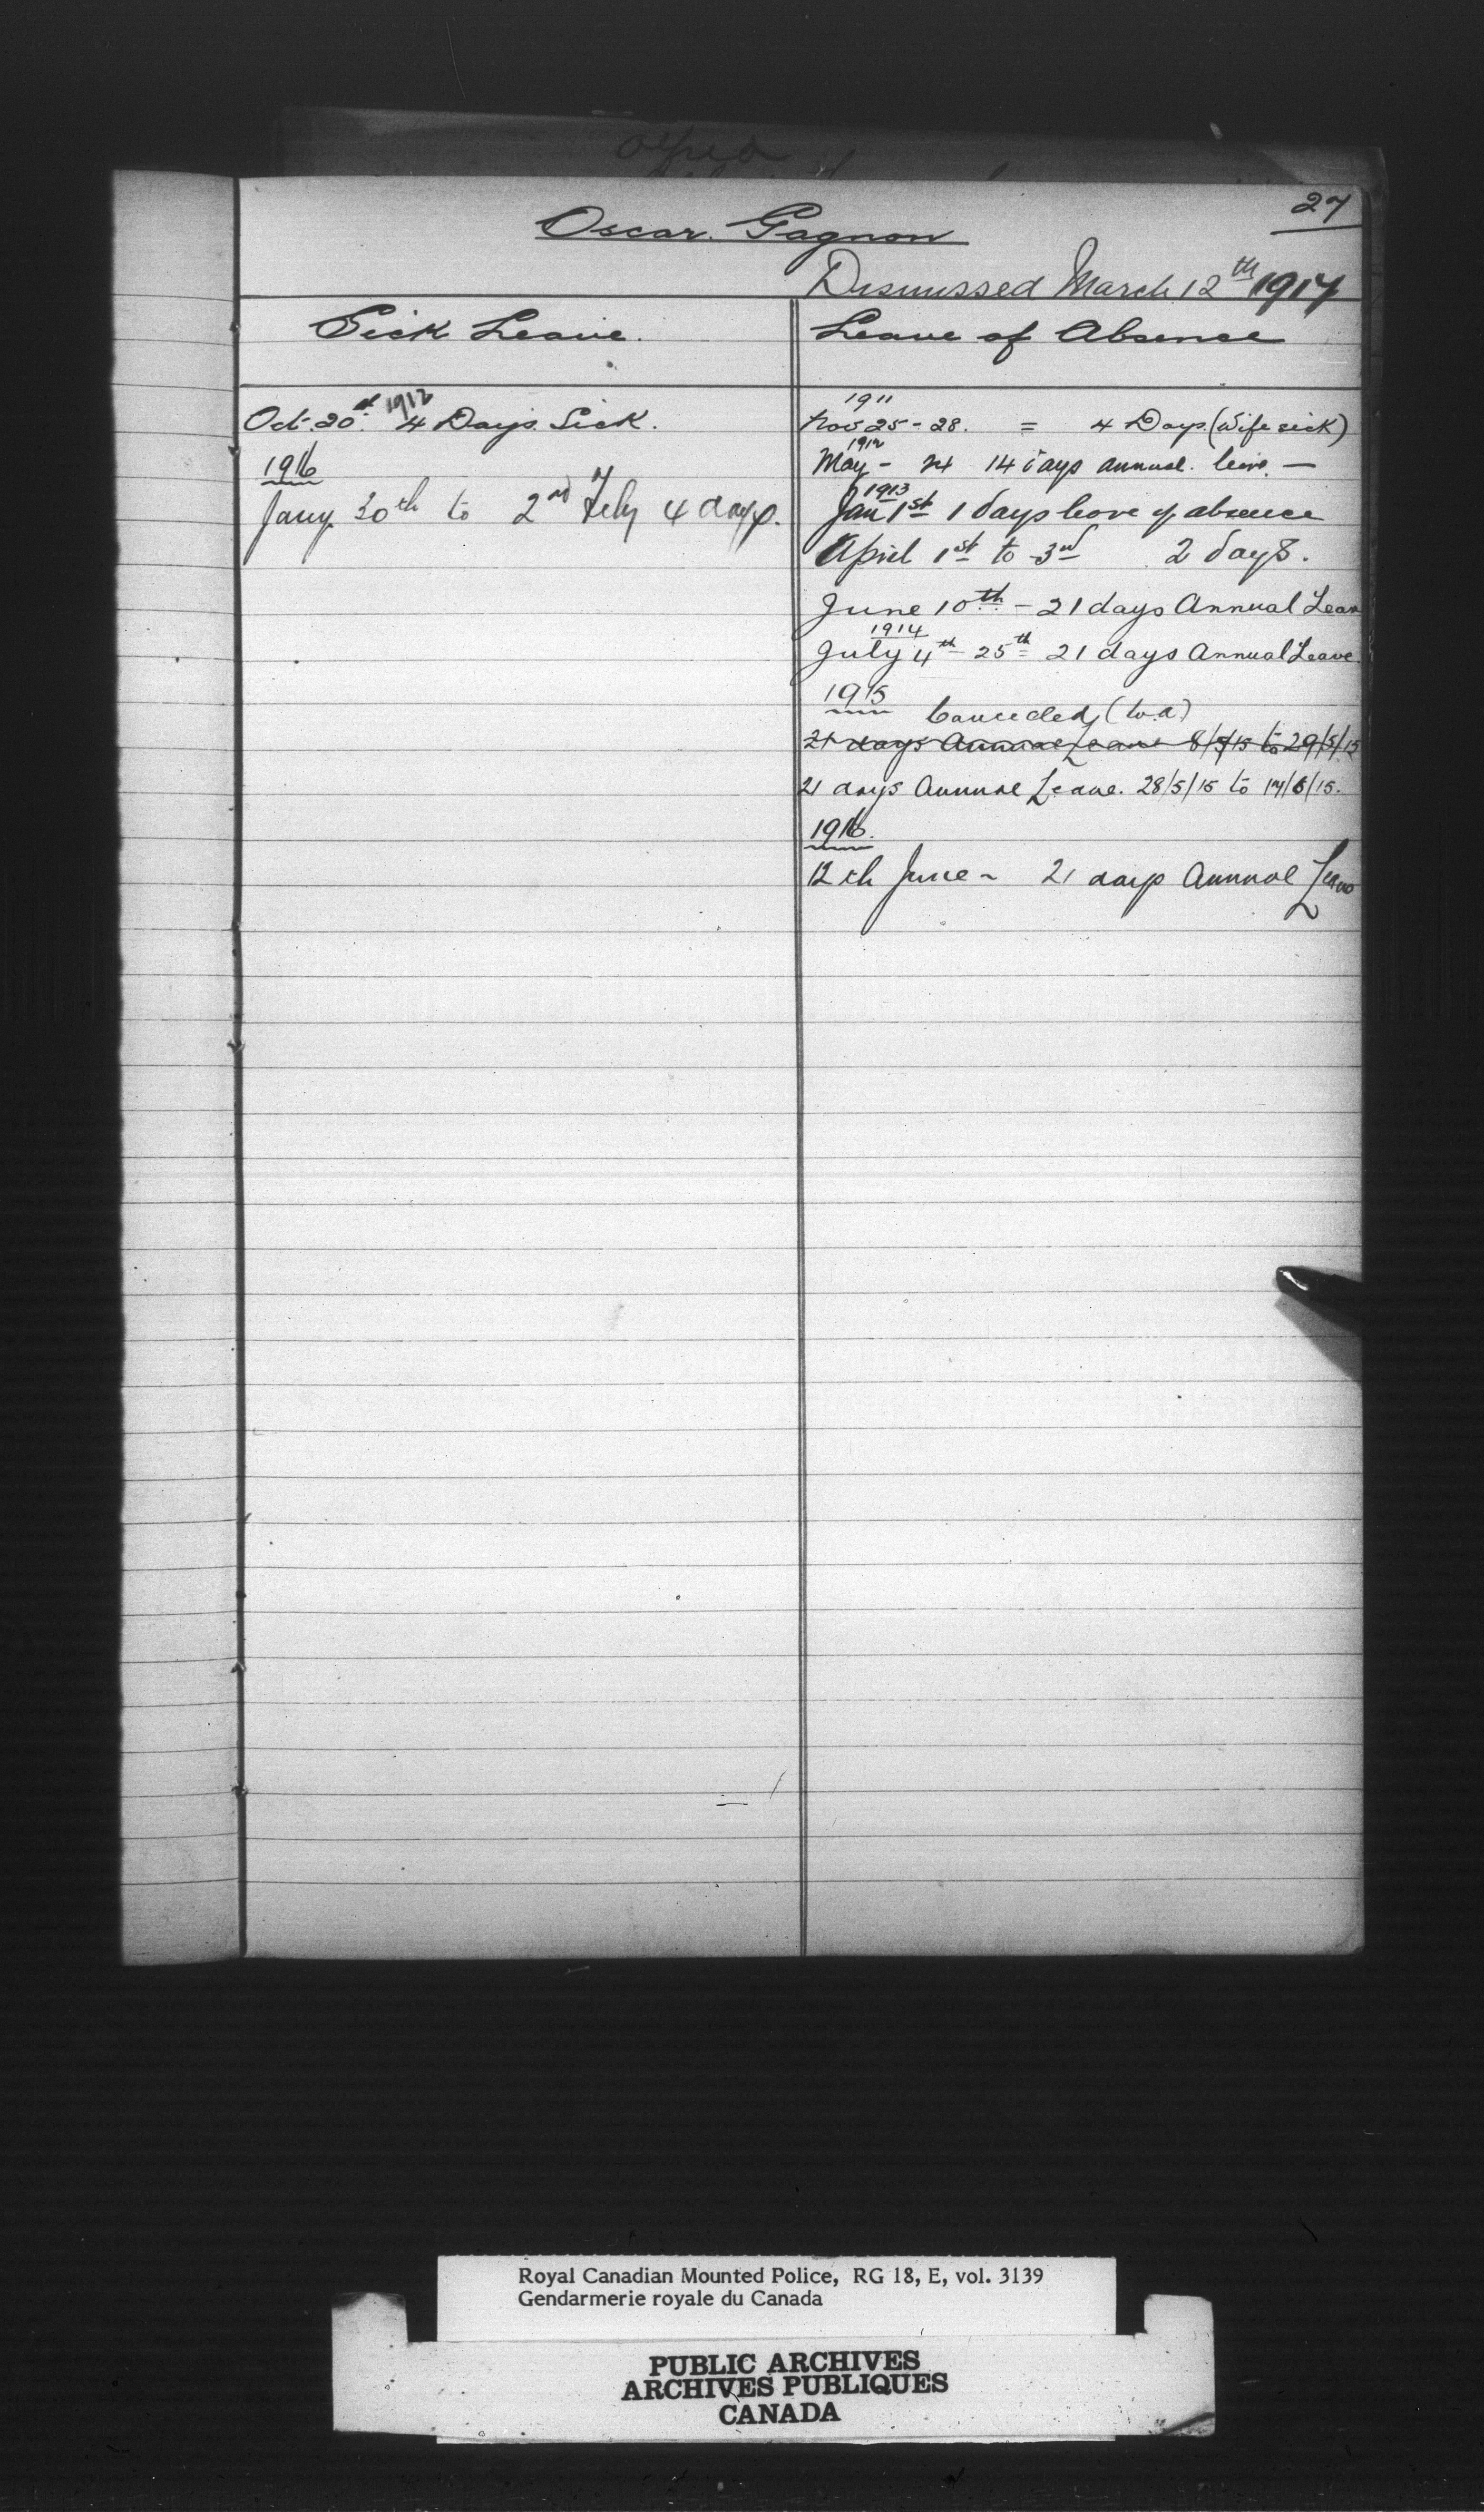 27
Oscar. Gagnon
Dismissed March 12th 1917
Sick Leave.
Leave of Absence
Oct. 20st. 1912 4 Days. Sick.
1916
Jany. 30th to 2nd Feby 4 days.
1911
Nov 25 - 28. = 4 Days. (Wife sick)
1912
May - 24 14 days annual. leave. —
1913
Jan 1st 1 days leave of absence
April 1st to 3rd 2 days.
June 10th - 21 days Annual Leave
1914
July 4th - 25th 21 days Annual Leave.
1915
Cancelled (W.A)
21 days Annual Leave 8/5/15 to 29/5/15
21 days Annual Leave. 28/5/15 to 17/6/15.
1916.
12th June - 21 days Annual Leave
Royal Canadian Mounted Police, RG 18, E, vol. 3139
Gendarmerie royale du Canada
PUBLIC ARCHIVES
ARCHIVES PUBLIQUES
CANADA